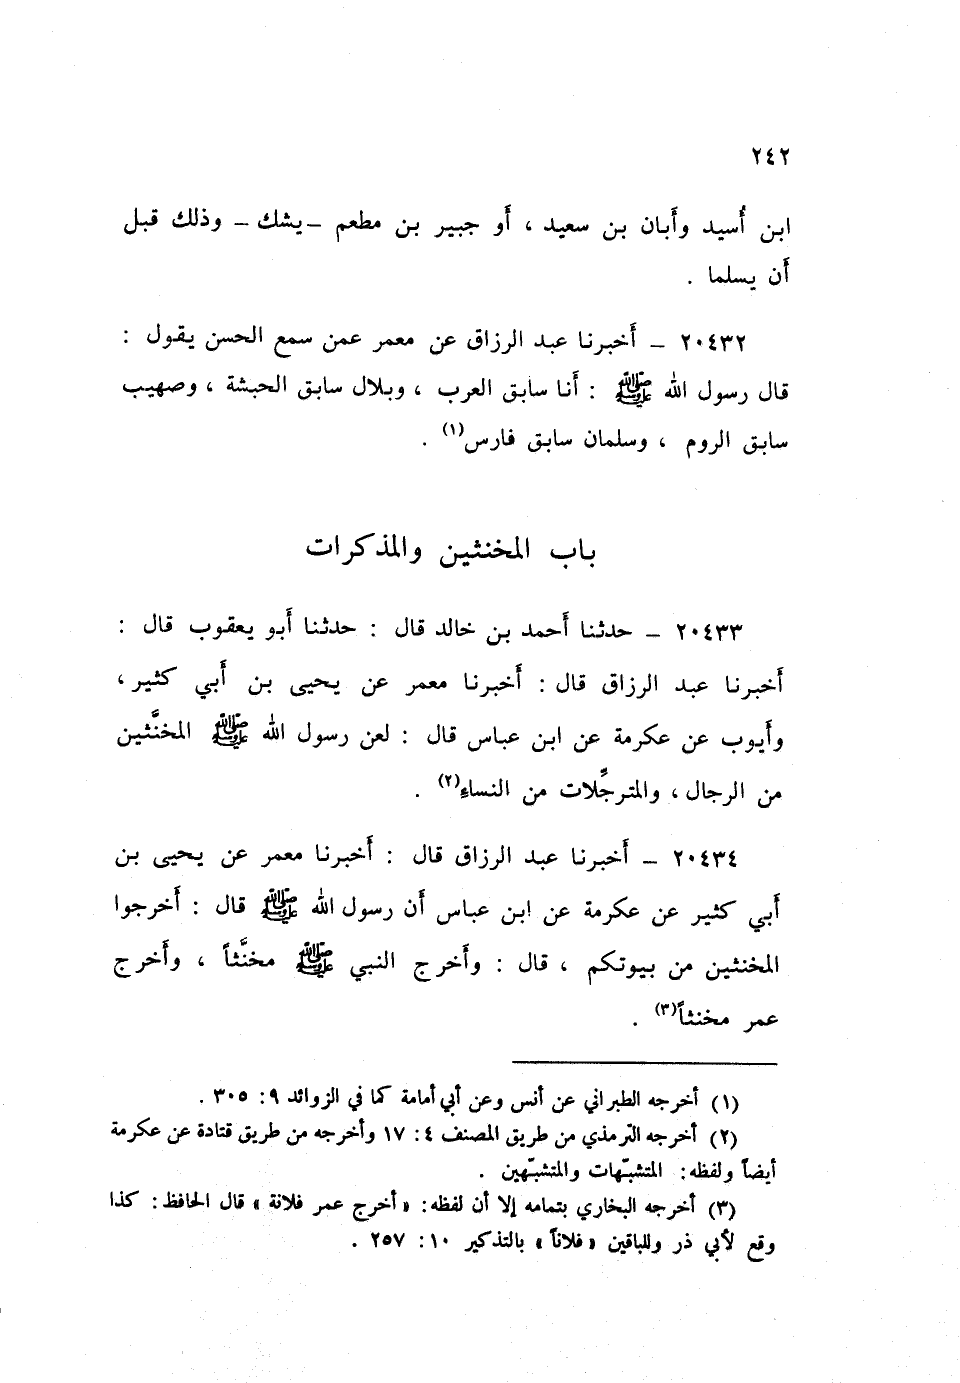 ٢٤٢
ابن أُسيد وأَبان بن سعيد ، أَو جبير بن مطعم –يشك– وذلك قبل
أَن يسلما .
٢٠٤٣٢ – أَخبرنا عبد الرزاق عن معمر عمن سمع الحسن يقول :
قال رسول الله ﷺ : أَنا سابق العرب ، وبلال سابق الحبشة ، وصهيب
سابق الروم ، وسلمان سابق فارس(١) .
باب المخنثين والمذكرات
٢٠٤٣٣ – حدثنا أَحمد بن خالد قال : حدثنا أَبو يعقوب قال :
أَخبرنا عبد الرزاق قال : أَخبرنا معمر عن يحيى بن أَبي كثير ،
وأَيوب عن عكرمة عن ابن عباس قال : لعن رسول الله ﷺ المخنَّثين
من الرجال ، والمترجِّلات من النساءِ(٢) .
٢٠٤٣٤ – أَخبرنا عبد الرزاق قال : أَخبرنا معمر عن يحيى بن
أَبي كثير عن عكرمة عن ابن عباس أَن رسول الله ﷺ قال : أَخرجوا
المخنثين من بيوتكم ، قال : وأَخرج النبي ﷺ مخنَّثاً ، وأَخرج
عمر مخنثاً(٣) .
(١) أخرجه الطبراني عن أنس وعن أبي أمامة كما في الزوائد ٩: ٣٠٥ .
(٢) أخرجه الترمذي من طريق المصنف ٤: ١٧ وأخرجه من طريق قتادة عن عكرمة
أيضاً ولفظه: المتشبّهات والمتشبّهين .
(٣) أخرجه البخاري بتمامه إلا أن لفظه: «أخرج عمر فلانة» قال الحافظ: كذا
وقع لأبي ذر وللباقين «فلاناً» بالتذكير ١٠: ٢٥٧ .